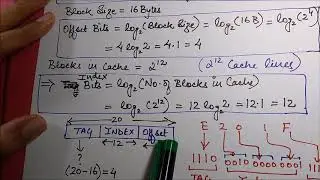 Block Size = 16 Bytes
Offset Bits = log₂(Block Size) = log₂(16 B) = log₂(2⁴)
= 4 log₂2 = 4·1 = 4
Blocks in Cache = 2¹² (2¹² Cache lines)
Index
⇒ Bits = log₂(No. of Blocks in Cache)
= log₂(2¹²) = 12 log₂2 = 12·1 = 12
20
TAG INDEX Offset
12
?
(20-16)=4
E 2 0 1 F
1110 0010 0000 0001